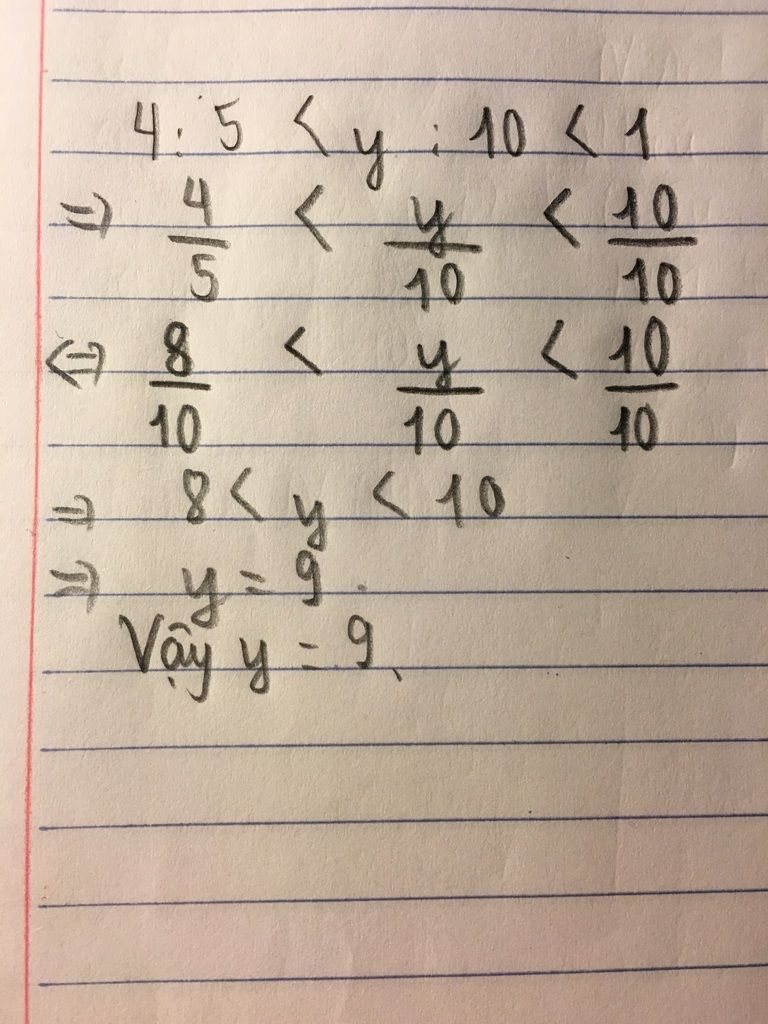 4 : 5 < y : 10 < 1
⇒ 4/5 < y/10 < 10/10
⇔ 8/10 < y/10 < 10/10
⇒ 8 < y < 10
⇒ y = 9.
Vậy y = 9.